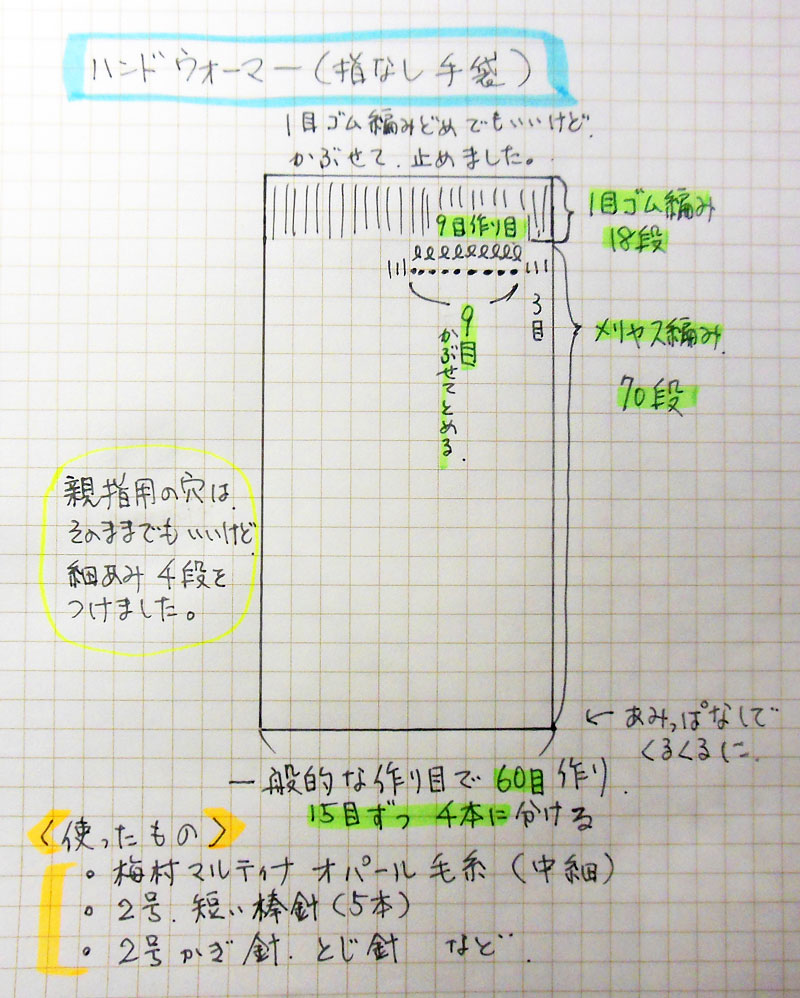 ハンドウォーマー(指なし手袋)
1目ゴム編みどめでもいいけど、
かぶせて、止めました。
1目ゴム編み
18段
9目作り目
3目
9目
かぶせてとめる.
メリヤス編み
70段
親指用の穴は、
そのままでもいいけど
細あみ4段を
つけました。
← あみっぱなしで
くるくるに.
一般的な作り目で60目作り.
15目ずつ 4本に分ける
〈使ったもの〉
・梅村マルティナ オパール毛糸(中細)
・2号.短い棒針(5本)
・2号かぎ針.とじ針 など.